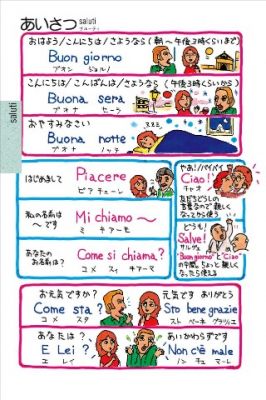 あいさつ saluti
サルーティ
saluti
おはよう/こんにちは/さようなら (朝〜午後3時くらいまで)
Buon giorno
ブオン ジョルノ
こんにちは/こんばんは/さようなら (午後3時くらいから)
Buona sera
ブオナ セーラ
おやすみなさい
Buona notte
ブオナ ノッテ
はじめまして
Piacere
ピアチェーレ
私の名前は
〜です
Mi chiamo 〜
ミ キアーモ
あなたの
お名前は?
Come si chiama?
コメ スィ キアーマ
やあ!/バイバイ
Ciao!
チャオ
友だちどうしの
言葉なので 親しく
なってから使う
どうも!
Salve!
サルヴェ
"Buon giorno" と "Ciao"
の中間。ちょっと親しく
なったら使える
お元気ですか?
Come sta?
コメ スタ
元気です ありがとう
Sto bene grazie
スト ベーネ グラツィエ
あなたは?
E Lei?
エ レイ
あいかわらずです
Non c'è male
ノン チェ マーレ